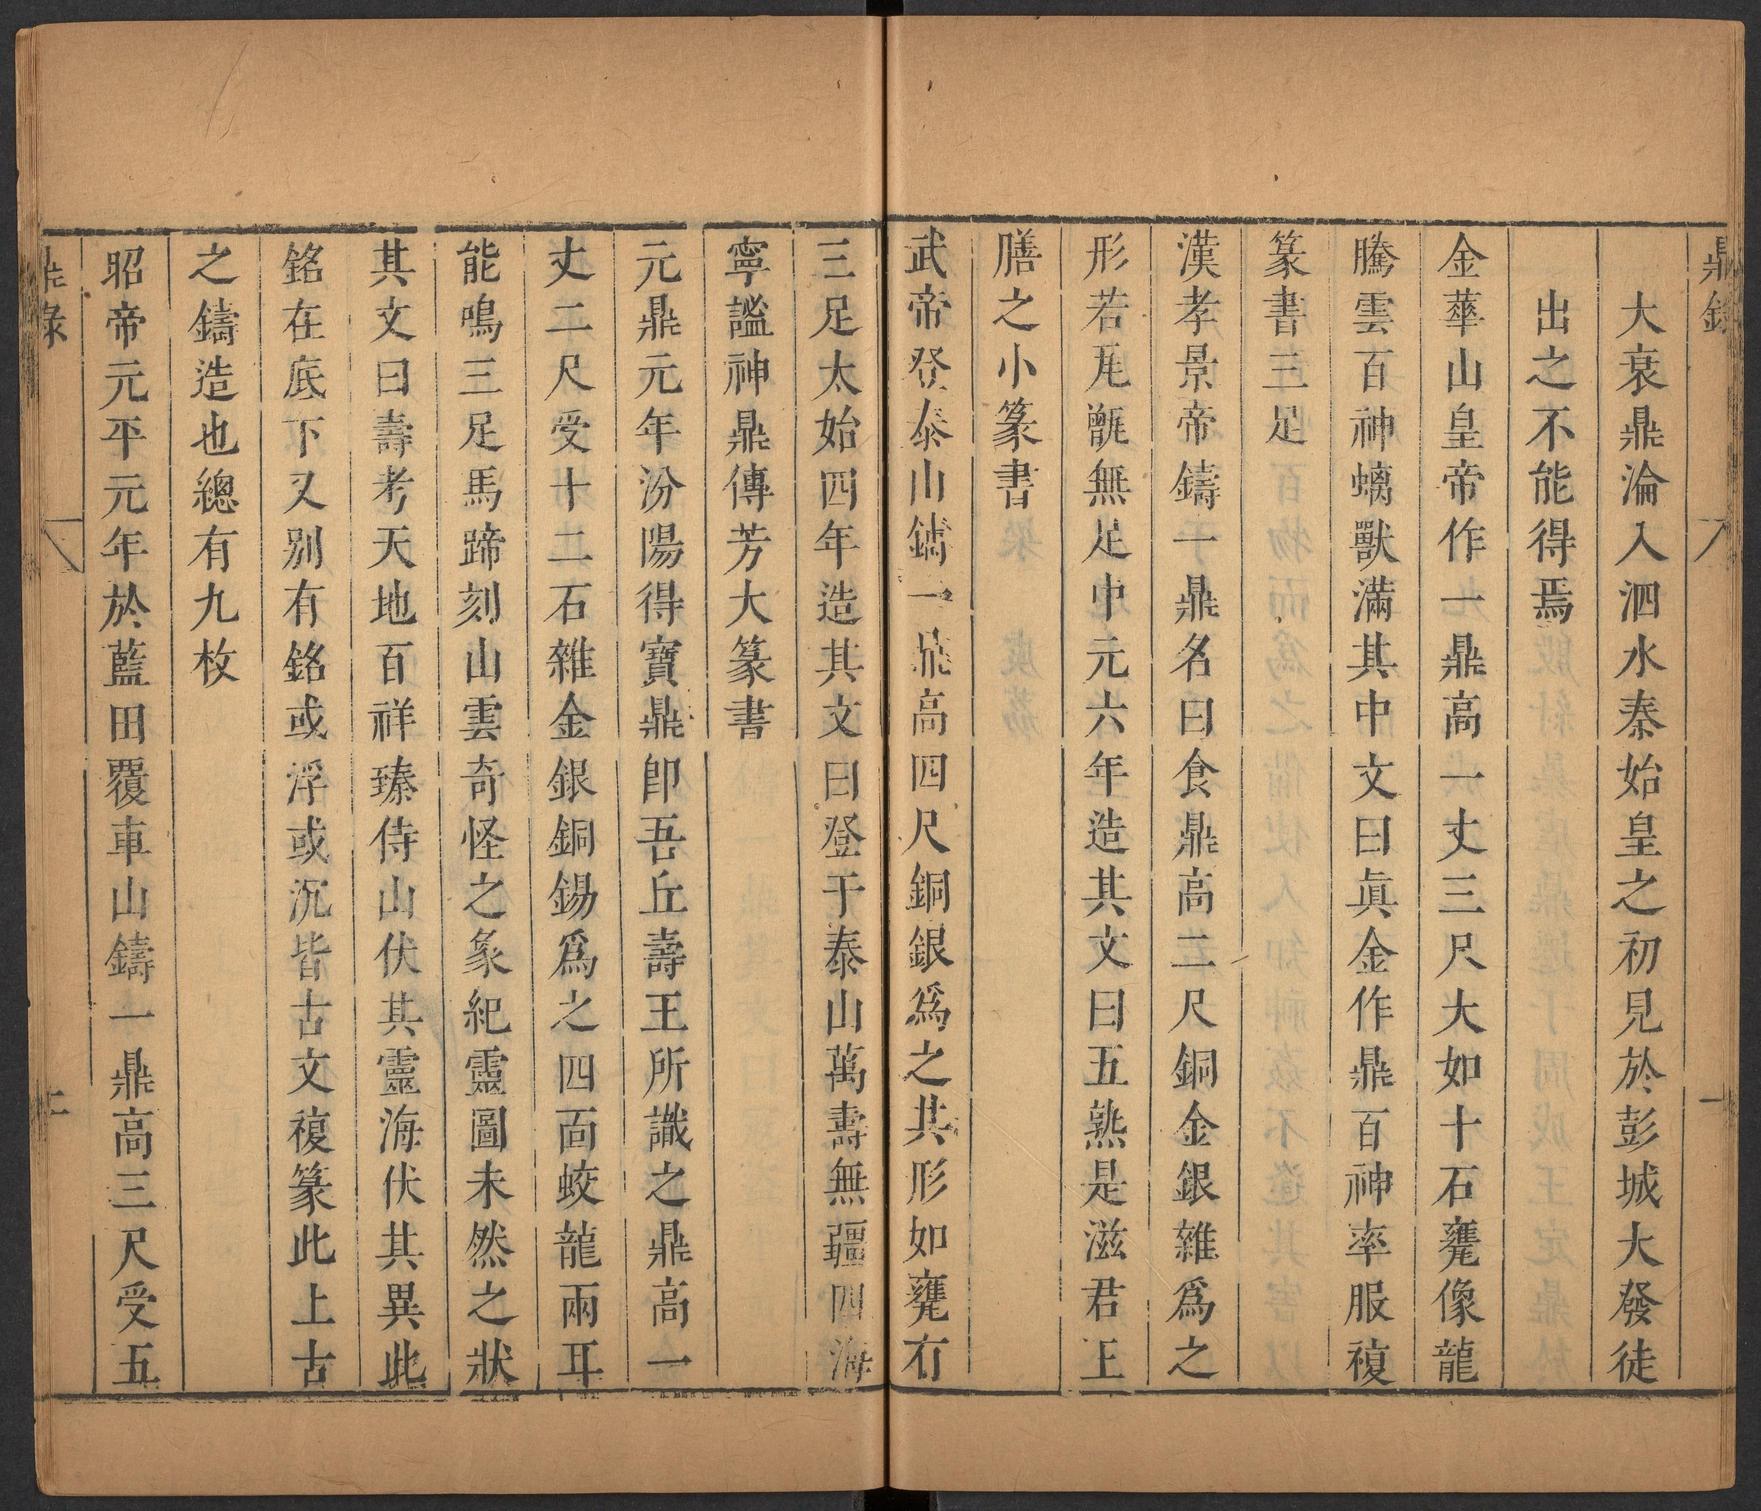 鼎錄 一
大衰鼎淪入泗水秦始皇之初見於彭城大發徒
出之不能得焉
金華山皇帝作一鼎高一丈三尺大如十石甕像龍
騰雲百神螭獸滿其中文曰眞金作鼎百神率服複
篆書三足
漢孝景帝鑄一鼎名曰食鼎高二尺銅金銀雜爲之
形若瓦甑無足中元六年造其文曰五熟是滋君王
膳之小篆書
武帝登泰山鑄一鼎高四尺銅銀爲之其形如甕有
三足太始四年造其文曰登于泰山萬壽無疆四海
寧謐神鼎傳芳大篆書
元鼎元年汾陽得寶鼎卽吾丘壽王所識之鼎高一
丈二尺受十二石雜金銀銅錫爲之四面蛟龍兩耳
能鳴三足馬蹄刻山雲奇怪之象紀靈圖未然之狀
其文曰壽考天地百祥臻侍山伏其靈海伏其異此
銘在底下又別有銘或浮或沉皆古文複篆此上古
之鑄造也總有九枚
昭帝元平元年於藍田覆車山鑄一鼎高三尺受五
鼎錄 二